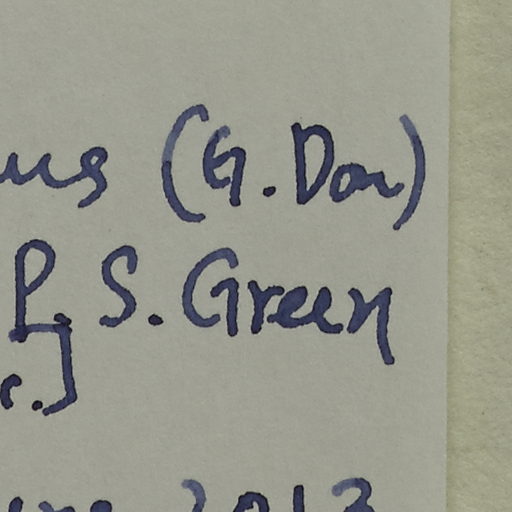 us (G. Don)
P. S. Green
c.]
2013